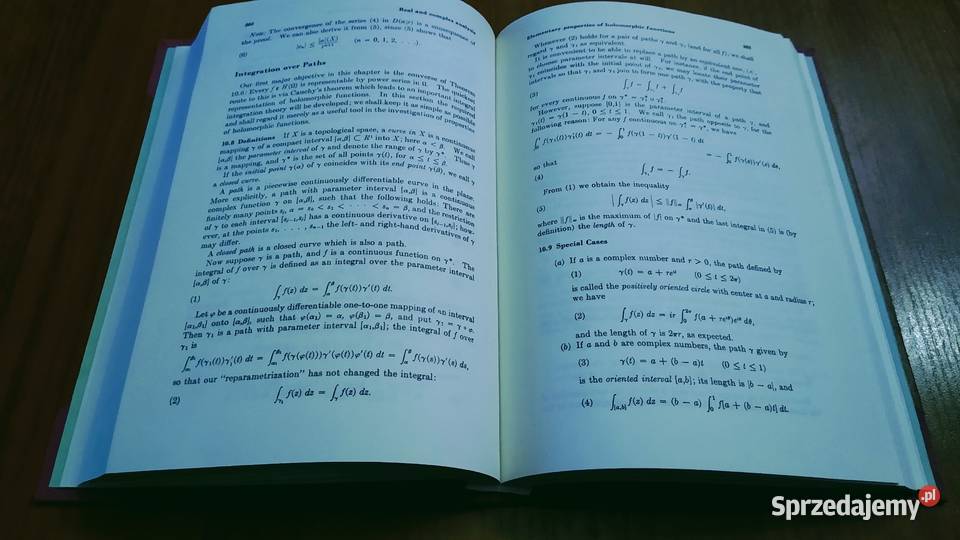 Real and complex analysis
Note: The convergence of the series (4) in D(a;r) is a consequence of
the proof. We can also derive it from (5), since (5) shows that
(6) (n = 0, 1, 2, . . .).
Integration over Paths
Our first major objective in this chapter is the converse of Theorem
10.6: Every f ∈ H(Ω) is representable by power series in Ω. The quickest
route to this is via Cauchy's theorem which leads to an important integral
representation of holomorphic functions. In this section the required
integration theory will be developed; we shall keep it as simple as possible
and shall regard it merely as a useful tool in the investigation of properties
of holomorphic functions.
10.8 Definitions If X is a topological space, a curve in X is a continuous
mapping γ of a compact interval [α,β] ⊂ R¹ into X; here α < β. We call
[α,β] the parameter interval of γ and denote the range of γ by γ*. Thus γ
is a mapping, and γ* is the set of all points γ(t), for α ≤ t ≤ β.
If the initial point γ(α) of γ coincides with its end point γ(β), we call γ
a closed curve.
A path is a piecewise continuously differentiable curve in the plane.
More explicitly, a path with parameter interval [α,β] is a continuous
complex function γ on [α,β], such that the following holds: There are
finitely many points sⱼ, α = s₀ < s₁ < · · · < sₙ = β, and the restriction
of γ to each interval [sⱼ₋₁,sⱼ] has a continuous derivative on [sⱼ₋₁,sⱼ]; how-
ever, at the points s₁, . . . , sₙ₋₁ the left- and right-hand derivatives of γ
may differ.
A closed path is a closed curve which is also a path.
Now suppose γ is a path, and f is a continuous function on γ*. The
integral of f over γ is defined as an integral over the parameter interval
[α,β] of γ:
(1) ∫_γ f(z) dz = ∫_α^β f(γ(t))γ'(t) dt.
Let φ be a continuously differentiable one-to-one mapping of an interval
[α₁,β₁] onto [α,β], such that φ(α₁) = α, φ(β₁) = β, and put γ₁ = γ ∘ φ.
Then γ₁ is a path with parameter interval [α₁,β₁]; the integral of f over
γ₁ is
∫_α₁^β₁ f(γ₁(t))γ₁'(t) dt = ∫_α₁^β₁ f(γ(φ(t)))γ'(φ(t))φ'(t) dt = ∫_α^β f(γ(s))γ'(s) ds,
so that our "reparametrization" has not changed the integral:
(2) ∫_γ₁ f(z) dz = ∫_γ f(z) dz.
Elementary properties of holomorphic functions
Whenever (2) holds for a pair of paths γ and γ₁ (and for all f), we shall
regard γ and γ₁ as equivalent.
It is convenient to be able to replace a path by an equivalent one, i.e.,
to choose parameter intervals at will. For instance, if the end point of
γ₁ coincides with the initial point of γ₂, we may locate their parameter
intervals so that γ₁ and γ₂ join to form one path γ, with the property that
(3) ∫_γ f = ∫_γ₁ f + ∫_γ₂ f
for every continuous f on γ* = γ₁* ∪ γ₂*.
However, suppose [0,1] is the parameter interval of a path γ, and
γ₁(t) = γ(1 − t), 0 ≤ t ≤ 1. We call γ₁ the path opposite to γ, for the
following reason: For any f continuous on γ₁* = γ*, we have
∫_0^1 f(γ₁(t))γ₁'(t) dt = − ∫_0^1 f(γ(1 − t))γ'(1 − t) dt
= − ∫_0^1 f(γ(s))γ'(s) ds,
so that
(4) ∫_γ₁ f = − ∫_γ f.
From (1) we obtain the inequality
(5) |∫_γ f(z) dz| ≤ ‖f‖_∞ ∫_α^β |γ'(t)| dt,
where ‖f‖_∞ is the maximum of |f| on γ* and the last integral in (5) is (by
definition) the length of γ.
10.9 Special Cases
(a) If a is a complex number and r > 0, the path defined by
(1) γ(t) = a + re^{it} (0 ≤ t ≤ 2π)
is called the positively oriented circle with center at a and radius r;
we have
(2) ∫_γ f(z) dz = ir ∫_0^{2π} f(a + re^{iθ})e^{iθ} dθ,
and the length of γ is 2πr, as expected.
(b) If a and b are complex numbers, the path γ given by
(3) γ(t) = a + (b − a)t (0 ≤ t ≤ 1)
is the oriented interval [a,b]; its length is |b − a|, and
(4) ∫_{[a,b]} f(z) dz = (b − a) ∫_0^1 f[a + (b − a)t] dt.
Sprzedajemy.pl